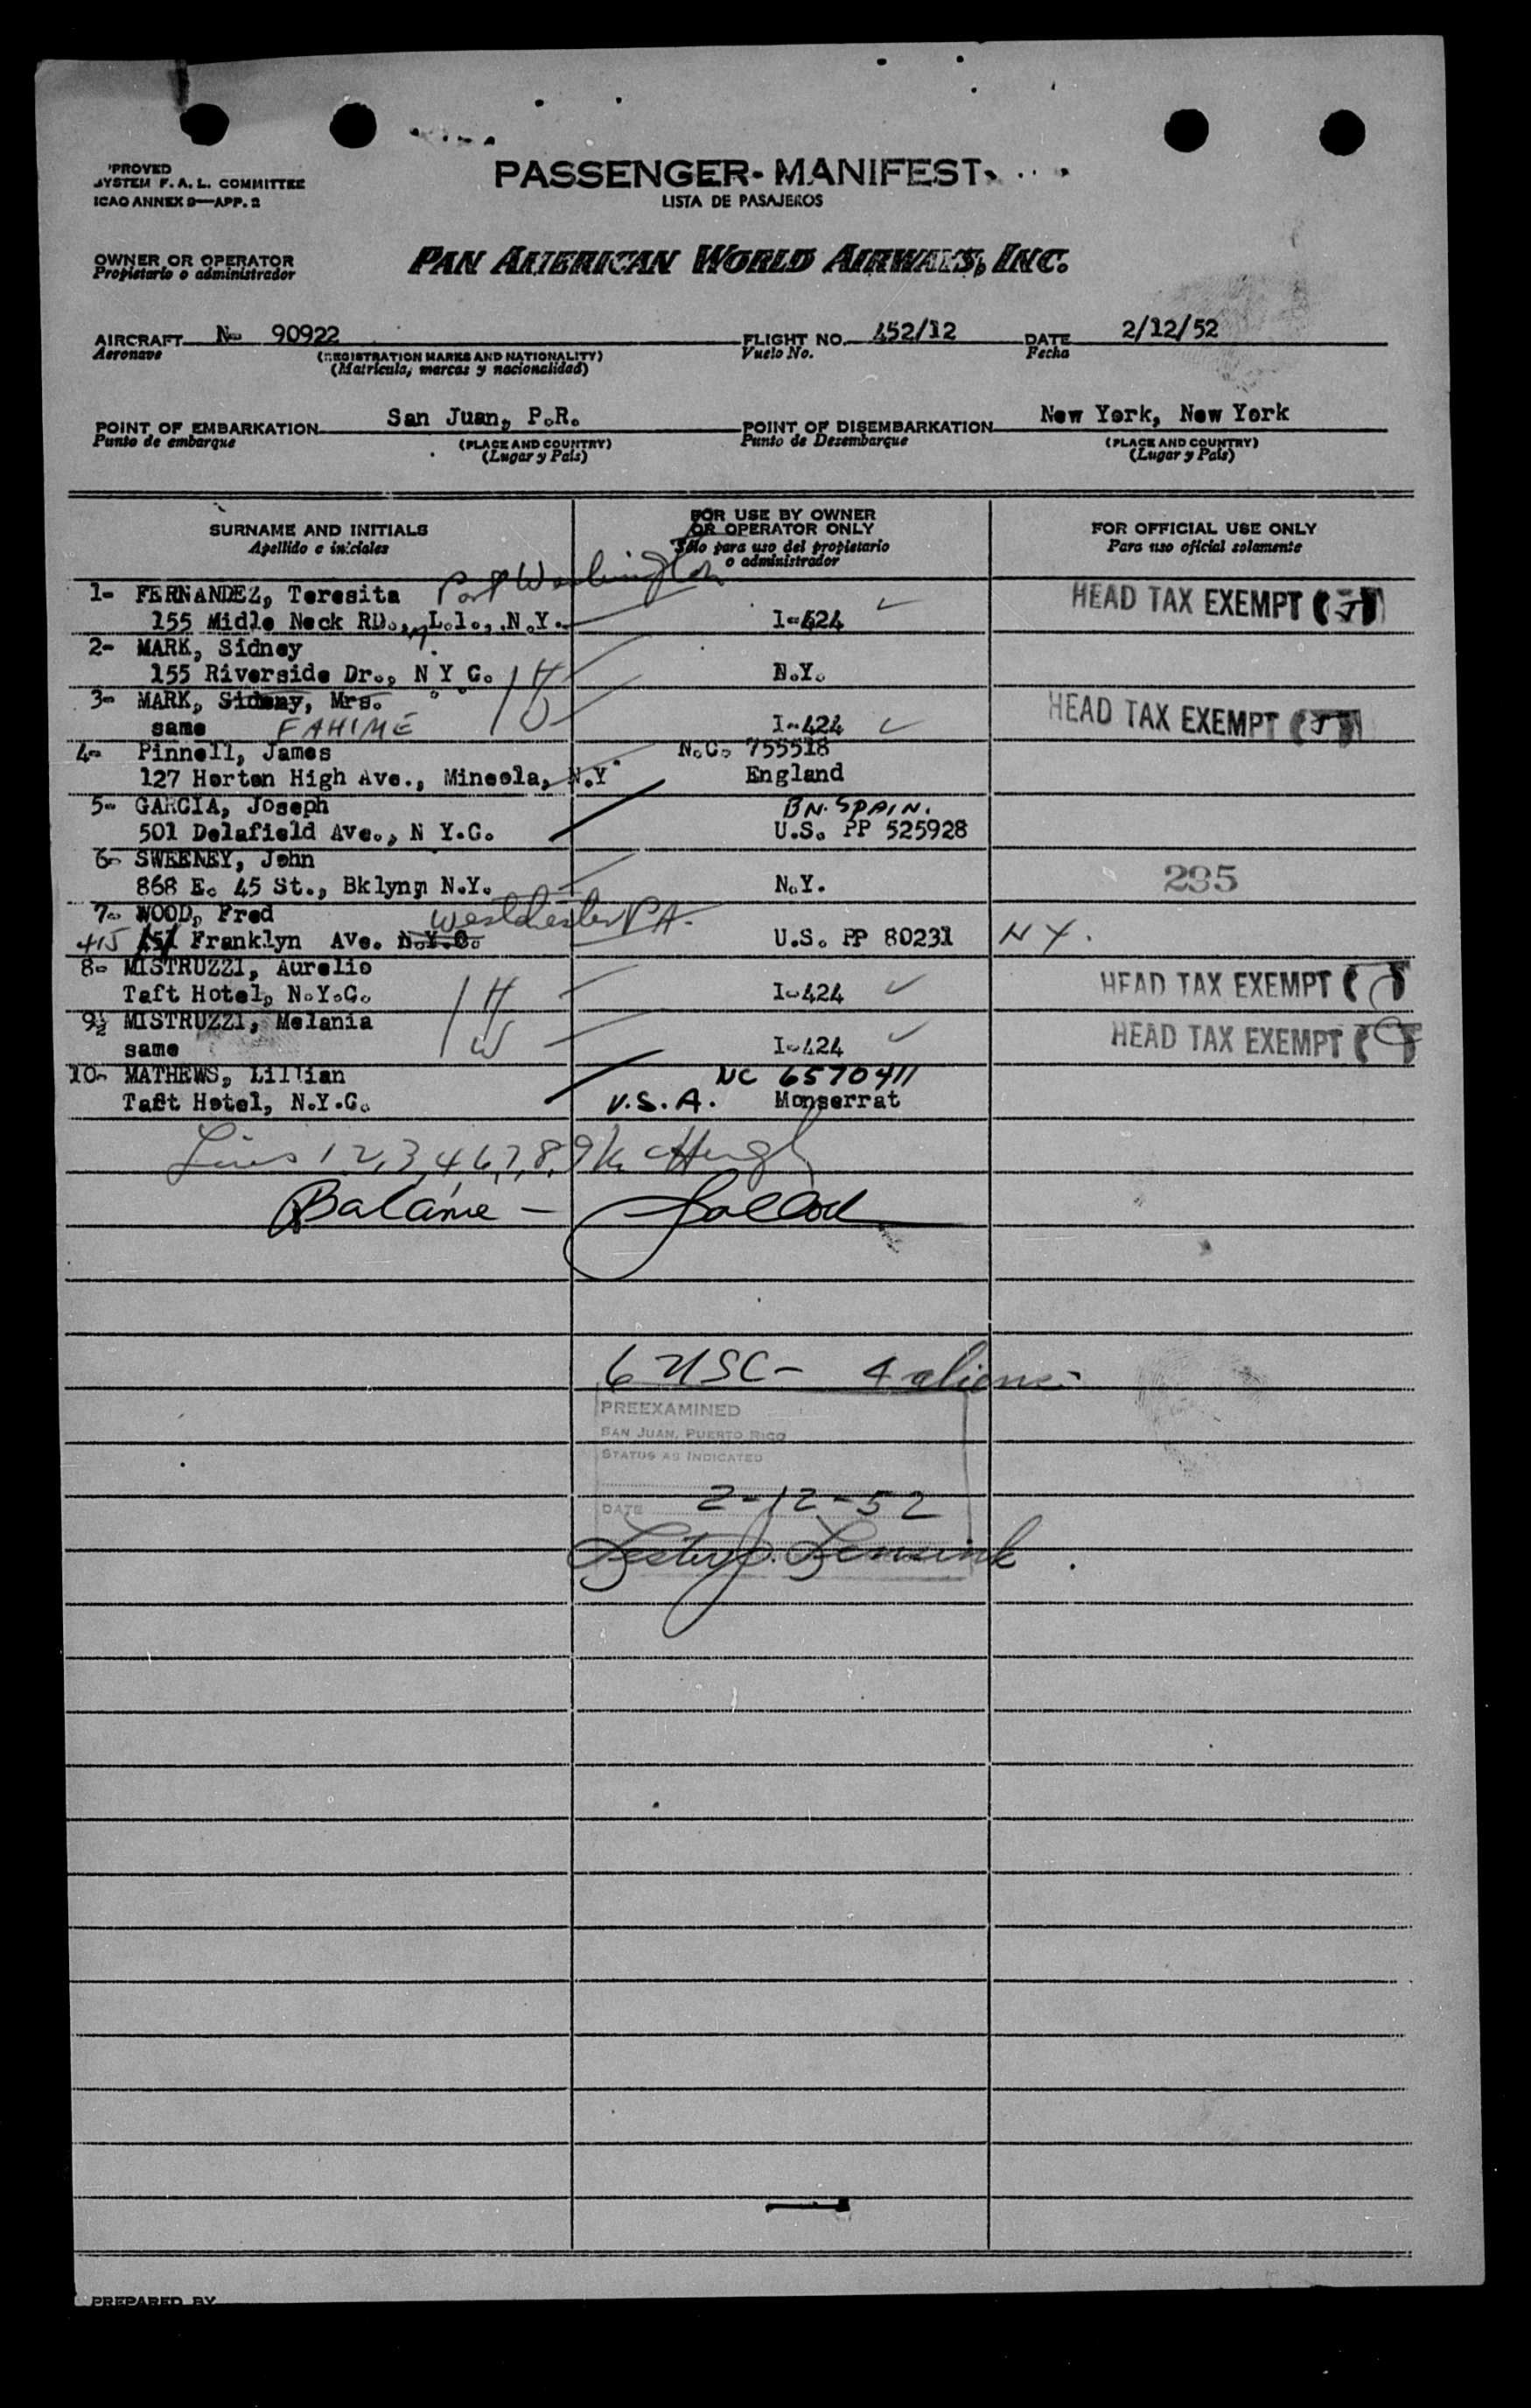 PROVED
SYSTEM F. A. L. COMMITTEE
ICAO ANNEX 9—APP. 2
PASSENGER-MANIFEST
LISTA DE PASAJEROS
OWNER OR OPERATOR
Propietario o administrador
PAN AMERICAN WORLD AIRWAYS, INC.
AIRCRAFT N- 90922
Aeronave
(REGISTRATION MARKS AND NATIONALITY)
(Matrícula, marcas y nacionalidad)
FLIGHT NO. 452/12
Vuelo No.
DATE 2/12/52
Fecha
POINT OF EMBARKATION San Juan, P.R.
Punto de embarque
(PLACE AND COUNTRY)
(Lugar y País)
POINT OF DISEMBARKATION New York, New York
Punto de Desembarque
(PLACE AND COUNTRY)
(Lugar y País)
SURNAME AND INITIALS
Apellido e iniciales
FOR USE BY OWNER
OR OPERATOR ONLY
Sólo para uso del propietario
o administrador
FOR OFFICIAL USE ONLY
Para uso oficial solamente
1- FERNANDEZ, Teresita Port Washington HEAD TAX EXEMPT
155 Midle Neck RD., L.I., N.Y. I-424
2- MARK, Sidney
155 Riverside Dr., N Y C. H N.Y.
3- MARK, Sidney, Mrs. " " W HEAD TAX EXEMPT
same FAHIME I-424
4- Pinnell, James N.C. 755518
127 Horton High Ave., Mineola, N.Y England
5- GARCIA, Joseph BN. SPAIN.
501 Delafield Ave., N Y.C. U.S. PP 525928
6- SWEENEY, John
868 E. 45 St., Bklyn, N.Y. N.Y. 295
7- WOOD, Fred Westchester PA.
415 151 Franklyn Ave. N.Y.C. U.S. PP 80231 NY.
8- MISTRUZZI, Aurelio HEAD TAX EXEMPT
Taft Hotel, N.Y.C. H I-424
9½ MISTRUZZI, Melania HEAD TAX EXEMPT
same W I-424
10- MATHEWS, Lillian NC 6570411
Taft Hotel, N.Y.C. U.S.A. Monserrat
Lines 1 2,3,4,6,7,8,9
Balance -
6 USC- 4 aliens-
PREEXAMINED
SAN JUAN, PUERTO RICO
STATUS AS INDICATED
DATE 2-12-52
PREPARED BY